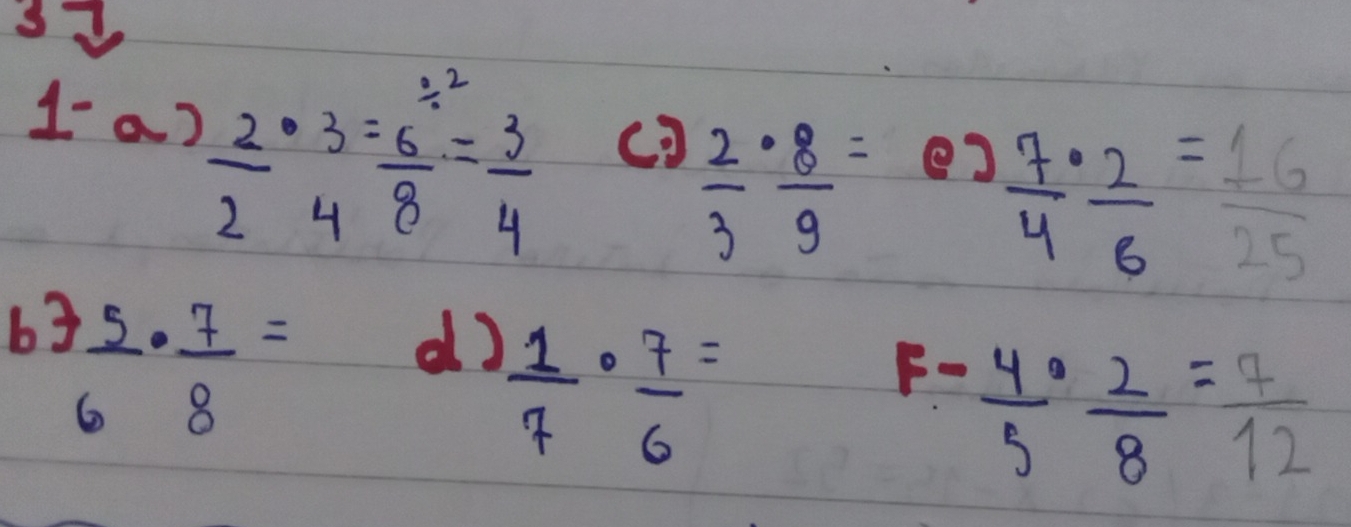 3 7
1- a) 2/2 • 3/4 = 6/8 ÷2 = 3/4
c) 2/3 • 8/9 =
e) 7/4 • 2/6 = 16/25
b) 5/6 • 7/8 =
d) 1/7 • 7/6 =
F- 4/5 • 2/8 = 7/12